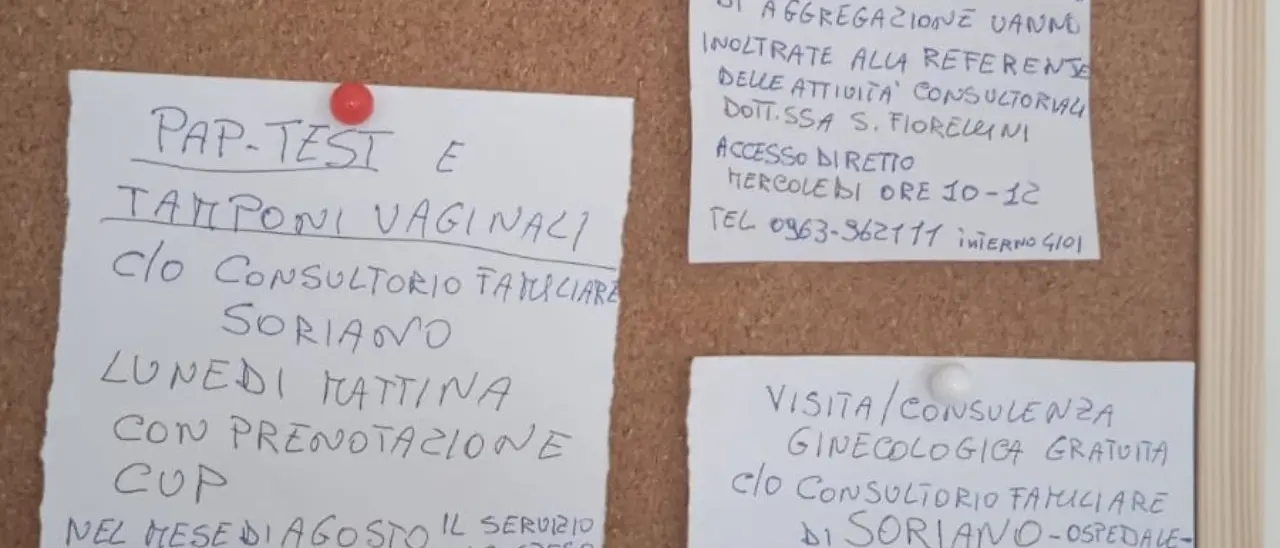 PAP-TEST E
TAMPONI VAGINALI
C/O CONSULTORIO FAMILIARE
SORIANO
LUNEDI MATTINA
CON PRENOTAZIONE
CUP
NEL MESE DI AGOSTO IL SERVIZIO
DI AGGREGAZIONE VANNO
INOLTRATE ALLA REFERENTE
DELLE ATTIVITA' CONSULTORIALI
DOTT.SSA S. FIORELLINI
ACCESSO DIRETTO
MERCOLEDI ORE 10-12
TEL 0963-962111 INTERNO 4101
VISITA/CONSULENZA
GINECOLOGICA GRATUITA
C/O CONSULTORIO FAMILIARE
DI SORIANO-OSPEDALE-